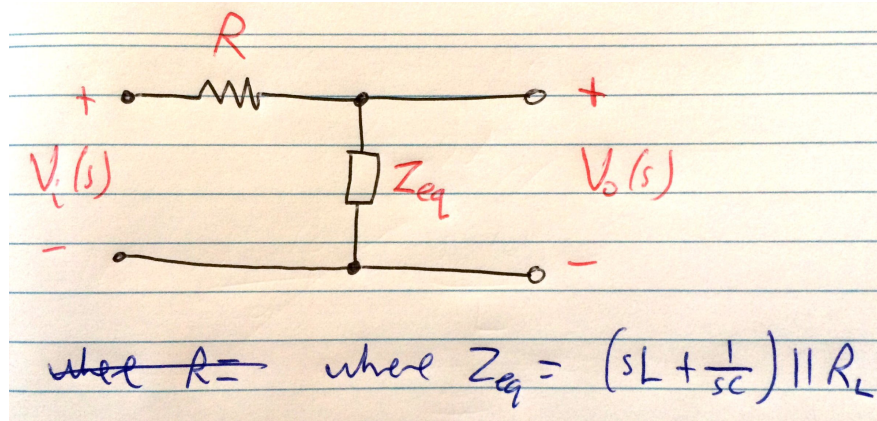 R
+ +
Vi(s) Zeq Vo(s)
- -
where R= where Zeq = (sL + 1/sC) || RL